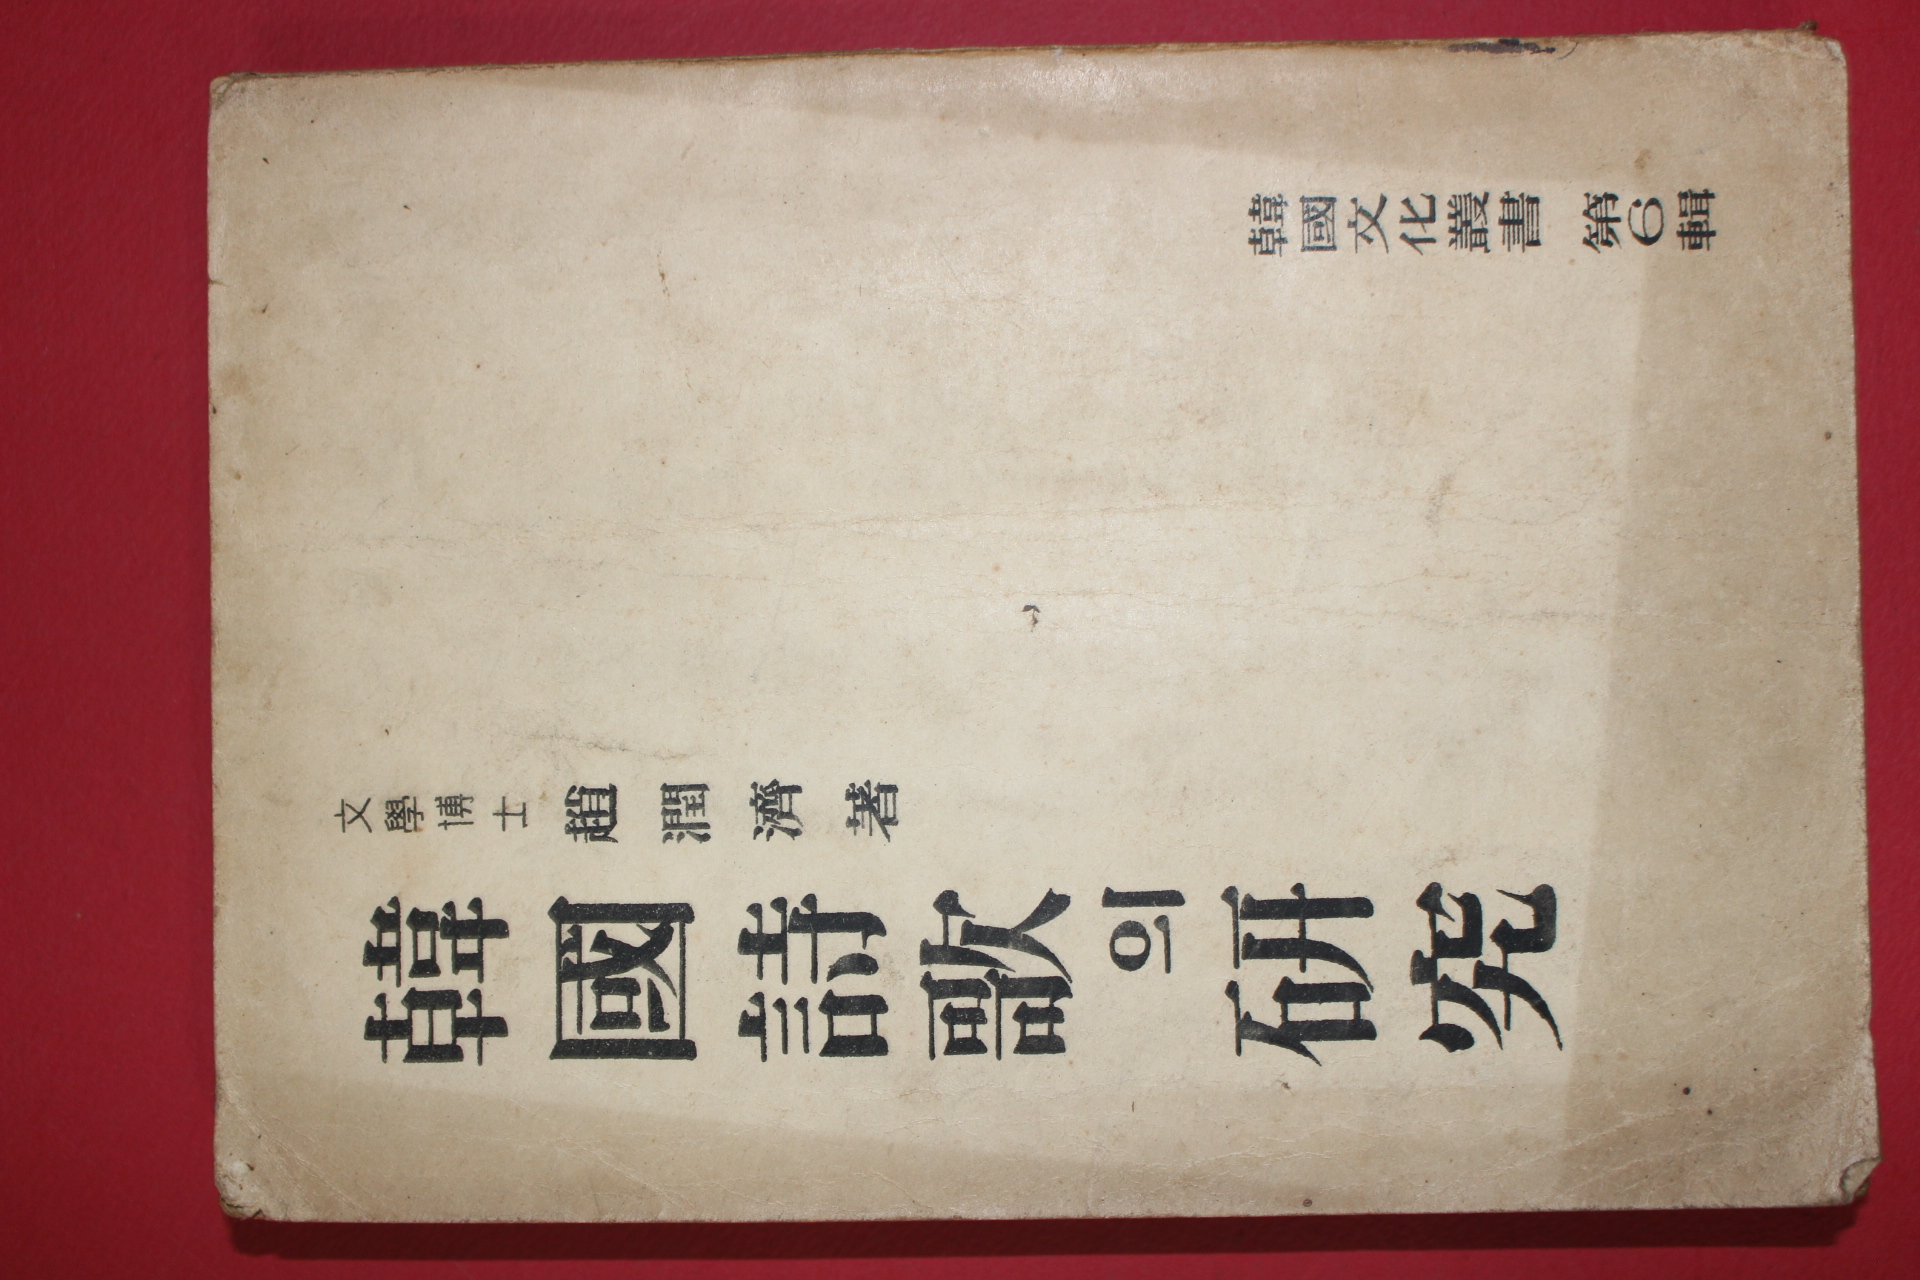 韓國詩歌의硏究
文學博士 趙潤濟 著
韓國文化叢書 第6輯